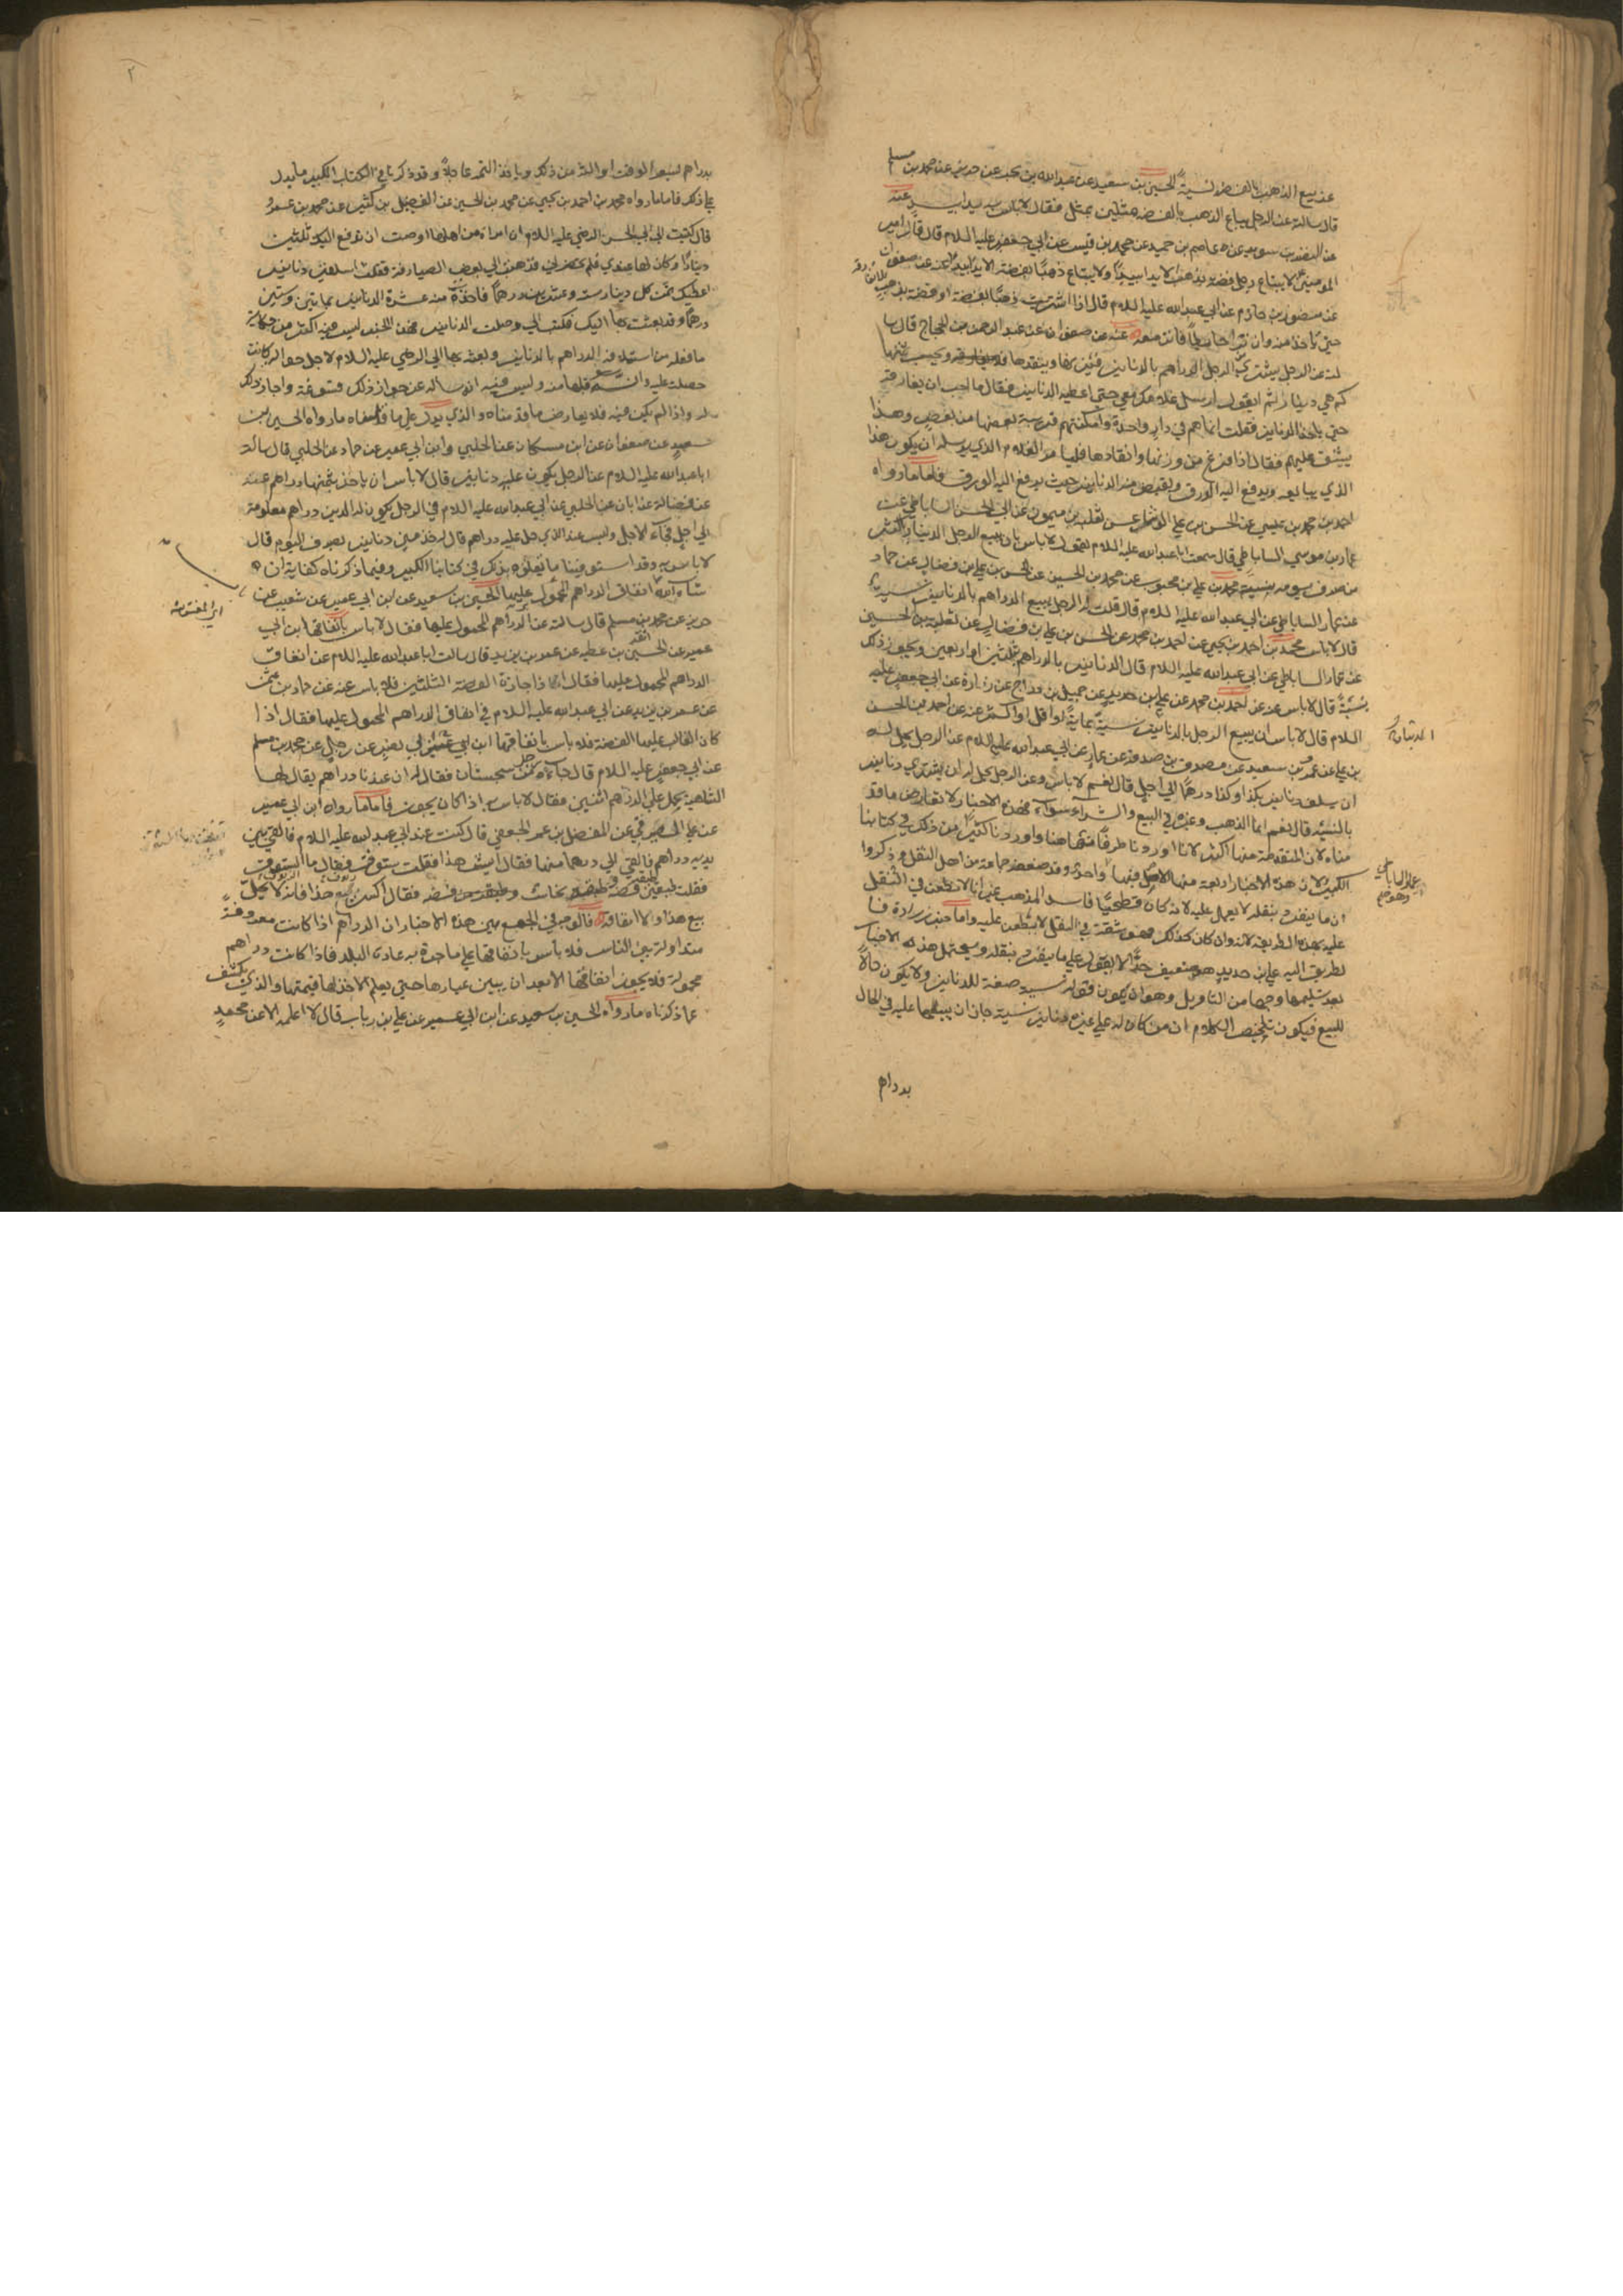 عن بيع الذهب بالفضة نسية الحسين بن سعيد عن عبدالله بن بحر عن حريز عن محمد بن مسلم
قال سالته عن الرجل يبتاع الذهب بالفضة مثلين بمثل فقال لا باس به يدا بيد عنه
عن النضر بن سويد عن عاصم بن حميد عن محمد بن قيس عن ابي جعفر عليه السلام قال قال امير
المومنين لا يبتاع رجل فضة بذهب الا يدا بيد ولا يبتاع ذهبا بفضة الا يدا بيد عنه عن صفوان
عن منصور بن حازم عن ابي عبدالله عليه السلام قال اذا اشتريت ذهبا بفضة او فضة بذهب فلا تفارقه
حتى تاخذ منه وان نزا حايطا فانز معه عنه عن صفوان عن عبد الرحمن بن الحجاج قال سا
لته عن الرجل يشتري من الرجل الدراهم بالدنانير فيزنها وينقدها ويحسب ثمنها
كم هي دينارا ثم يقول ارسل غلامك معي حتى اعطيه الدنانير فقال ما احب ان يفارقه
حتى ياخذ الدنانير فقلت انما هم في دار واحدة وامكنتهم قريبة بعضها من بعض وهذا
يشق عليهم فقال اذا فرغ من وزنها وانقادها فليامر الغلام الذي يرسله ان يكون هذا
الذي يبايعه ويدفع اليه الورق ويقبض منه الدنانير حيث يدفع اليه الورق فاما ما رواه
احمد بن محمد بن عيسى عن الحسن بن علي الوشاء عن ثعلبة بن ميمون عن ابي الحسن الساباطي عن
عمار بن موسى الساباطي قال سمعت ابا عبدالله عليه السلام يقول لا باس بان يبيع الرجل الدينار باكثر
من صرف يومه بنسية محمد بن علي بن محبوب عن محمد بن الحسين عن الحسن بن علي بن فضال عن حماد
عن عمار الساباطي عن ابي عبدالله عليه السلام قال قلت له الرجل يبيع الدراهم بالدنانير نسية
قال لا باس محمد بن احمد بن يحيى عن احمد بن محمد عن الحسن بن علي بن فضال عن ثعلبة بن الحسين
عن عمار الساباطي عن ابي عبدالله عليه السلام قال الدنانير بالدراهم بثلثين او اربعين ونحو ذلك
نسية قال لا باس عنه عن احمد بن محمد عن علي بن حديد عن جميل بن دراج عن زرارة عن ابي جعفر عليه
السلام قال لا باس ان يبيع الرجل بالدنانير نسية بماية او اقل او اكثر عنه عن احمد بن الحسن
بن علي عن عمرو بن سعيد عن مصدق بن صدقة عن عمار عن ابي عبدالله عليه السلام عن الرجل يحل له
ان يسلف دنانير بكذا وكذا درهما الى اجل قال نعم لا باس وعن الرجل يحل له ان يشتري دنانير
بالنسية قال نعم انما الذهب وغيره في البيع والشراء سواء فهذه الاخبار لا تعارض ما قد
مناه لان المتقدمة منها اكثر لانا اوردنا طرفا منها ههنا واوردنا كثيرا من ذلك في كتابنا
الكبير لان هذه الاخبار اربعة منها الاصل فيها واحد وقد ضعفه جماعة من اهل النقل وذكروا
ان ما ينفرد بنقله لا يعمل عليه لانه كان فطحيا فاسد المذهب غير انا لا نطعن في النقل
عليه بهذه الطريقة لانه وان كان كذلك فهو ثقة في النقل لا يطعن عليه واما خبر زرارة فا
لطريق اليه علي بن حديد وهو ضعيف جدا لا يعول على ما ينفرد بنقله ويحتمل هذه الاخبار
بعد تسليمها وجها من التاويل وهو ان يكون قوله نسية صفة للدنانير ولا يكون حالا
للبيع فيكون تلخيص الكلام ان من كان له على غيره دنانير نسية جاز ان يبيعها عليه في الحال
بدراهم
عمار الساباطي
٢
بدراهم بسعر الوقت او اكثر من ذلك وياخذ الثمن عاجلا وقد ذكرنا في الكتاب الكبير ما يدل
على ذلك فاما ما رواه محمد بن احمد بن يحيى عن محمد بن الحسين عن الفضيل بن كثير عن محمد بن عمرو
قال كتبت الى ابي الحسن الرضي عليه السلام ان امراة من اهلها اوصت ان ندفع اليك ثلثين
دينارا وكان لها عندي فلم يحضرني فذهبت الى بعض الصيارفة فقلت اسلفني دنانير
اعطيك ثمن كل دينار ستة وعشرين درهما فاخذت منه عشرة الدنانير بمايتين وستين
درهما وقد بعثت بها اليك فكتب الي وصلت الدنانير فهذا الخبر ليس فيه اكثر من حكاية
ما فعله من استلافه الدراهم بالدنانير وبعثه بها الى الرضي عليه السلام لاجل حوالة كانت
حصلت عليه وانه قبلها منه وليس فيه انه ساله عن جواز ذلك فسوغه واجاز ذلك
له واذا لم يكن فيه فلا يعارض ما قدمناه والذي يدل على ما قلناه ما رواه الحسين بن
سعيد عن صفوان عن ابن مسكان عن الحلبي وابن ابي عمير عن حماد عن الحلبي قال سالت
ابا عبدالله عليه السلام عن الرجل يكون عليه دنانير قال لا باس ان ياخذ بثمنها دراهم عنه
عن فضالة عن ابان عن الحلبي عن ابي عبدالله عليه السلام في الرجل يكون له الدين دراهم معلومة
الى اجل فجاء الاجل وليس عند الذي حل عليه دراهم قال له خذ مني دنانير بصرف اليوم قال
لا باس به وقد استوفينا ما يتعلق بذلك في كتابنا الكبير وفيما ذكرناه كفاية ان
شاء الله انفاق الدراهم المحمول عليها الحسين بن سعيد عن ابن ابي عمير عن شعيب عن
حريز عن محمد بن مسلم قال سالته عن الدراهم المحمول عليها فقال لا باس بانفاقها ابن ابي
عمير عن الحسين بن عطية عن عمر بن يزيد قال سالت ابا عبدالله عليه السلام عن انفاق
الدراهم المحمول عليها فقال اذا جازت الفضة الثلثين فلا باس عنه عن حماد بن عثمان
عن عمر بن يزيد عن ابي عبدالله عليه السلام في انفاق الدراهم المحمول عليها فقال اذا
كان الغالب عليها الفضة فلا باس بانفاقها ابن ابي عمير عن رجل عن محمد بن مسلم
عن ابي جعفر عليه السلام قال جاءه رجل من سجستان فقال له ان عندنا دراهم يقال لها
الشاهية يحمل على الدرهم اثنين فقال لا باس به اذا كان يجوز فاما ما رواه ابن ابي عمير
عن علي الصيرفي عن المفضل بن عمر الجعفي قال كنت عند ابي عبدالله عليه السلام فالقي بين
يديه دراهم فالقى الي درهما منها فقال ايش هذا فقلت ستوق فقال ما الستوق
فقلت طبقين فضة وطبقة نحاس وطبقة من فضة فقال اكسر هذا فانه لا يحل
بيع هذا ولا انفاقه فالوجه في الجمع بين هذه الاخبار ان الدراهم اذا كانت معروفة
متداولة بين الناس فلا باس بانفاقها على ما جرت به عادة البلد فاذا كانت دراهم
مجهولة فلا يجوز انفاقها الا بعد ان يبين عيارها حتى يعلم الاخذ لها قيمتها والذي يكشف
عما ذكرناه ما رواه الحسين بن سعيد عن ابن ابي عمير عن علي بن رياب قال لا اعلمه الا عن محمد
اي المغشوشة